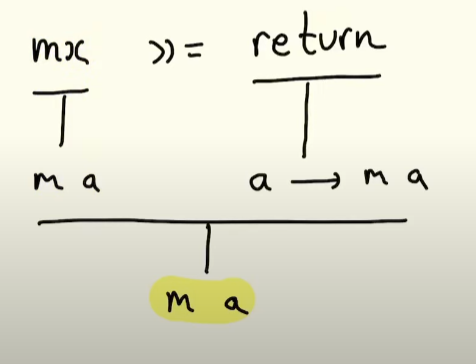 mx >>= return
m a a → m a
m a